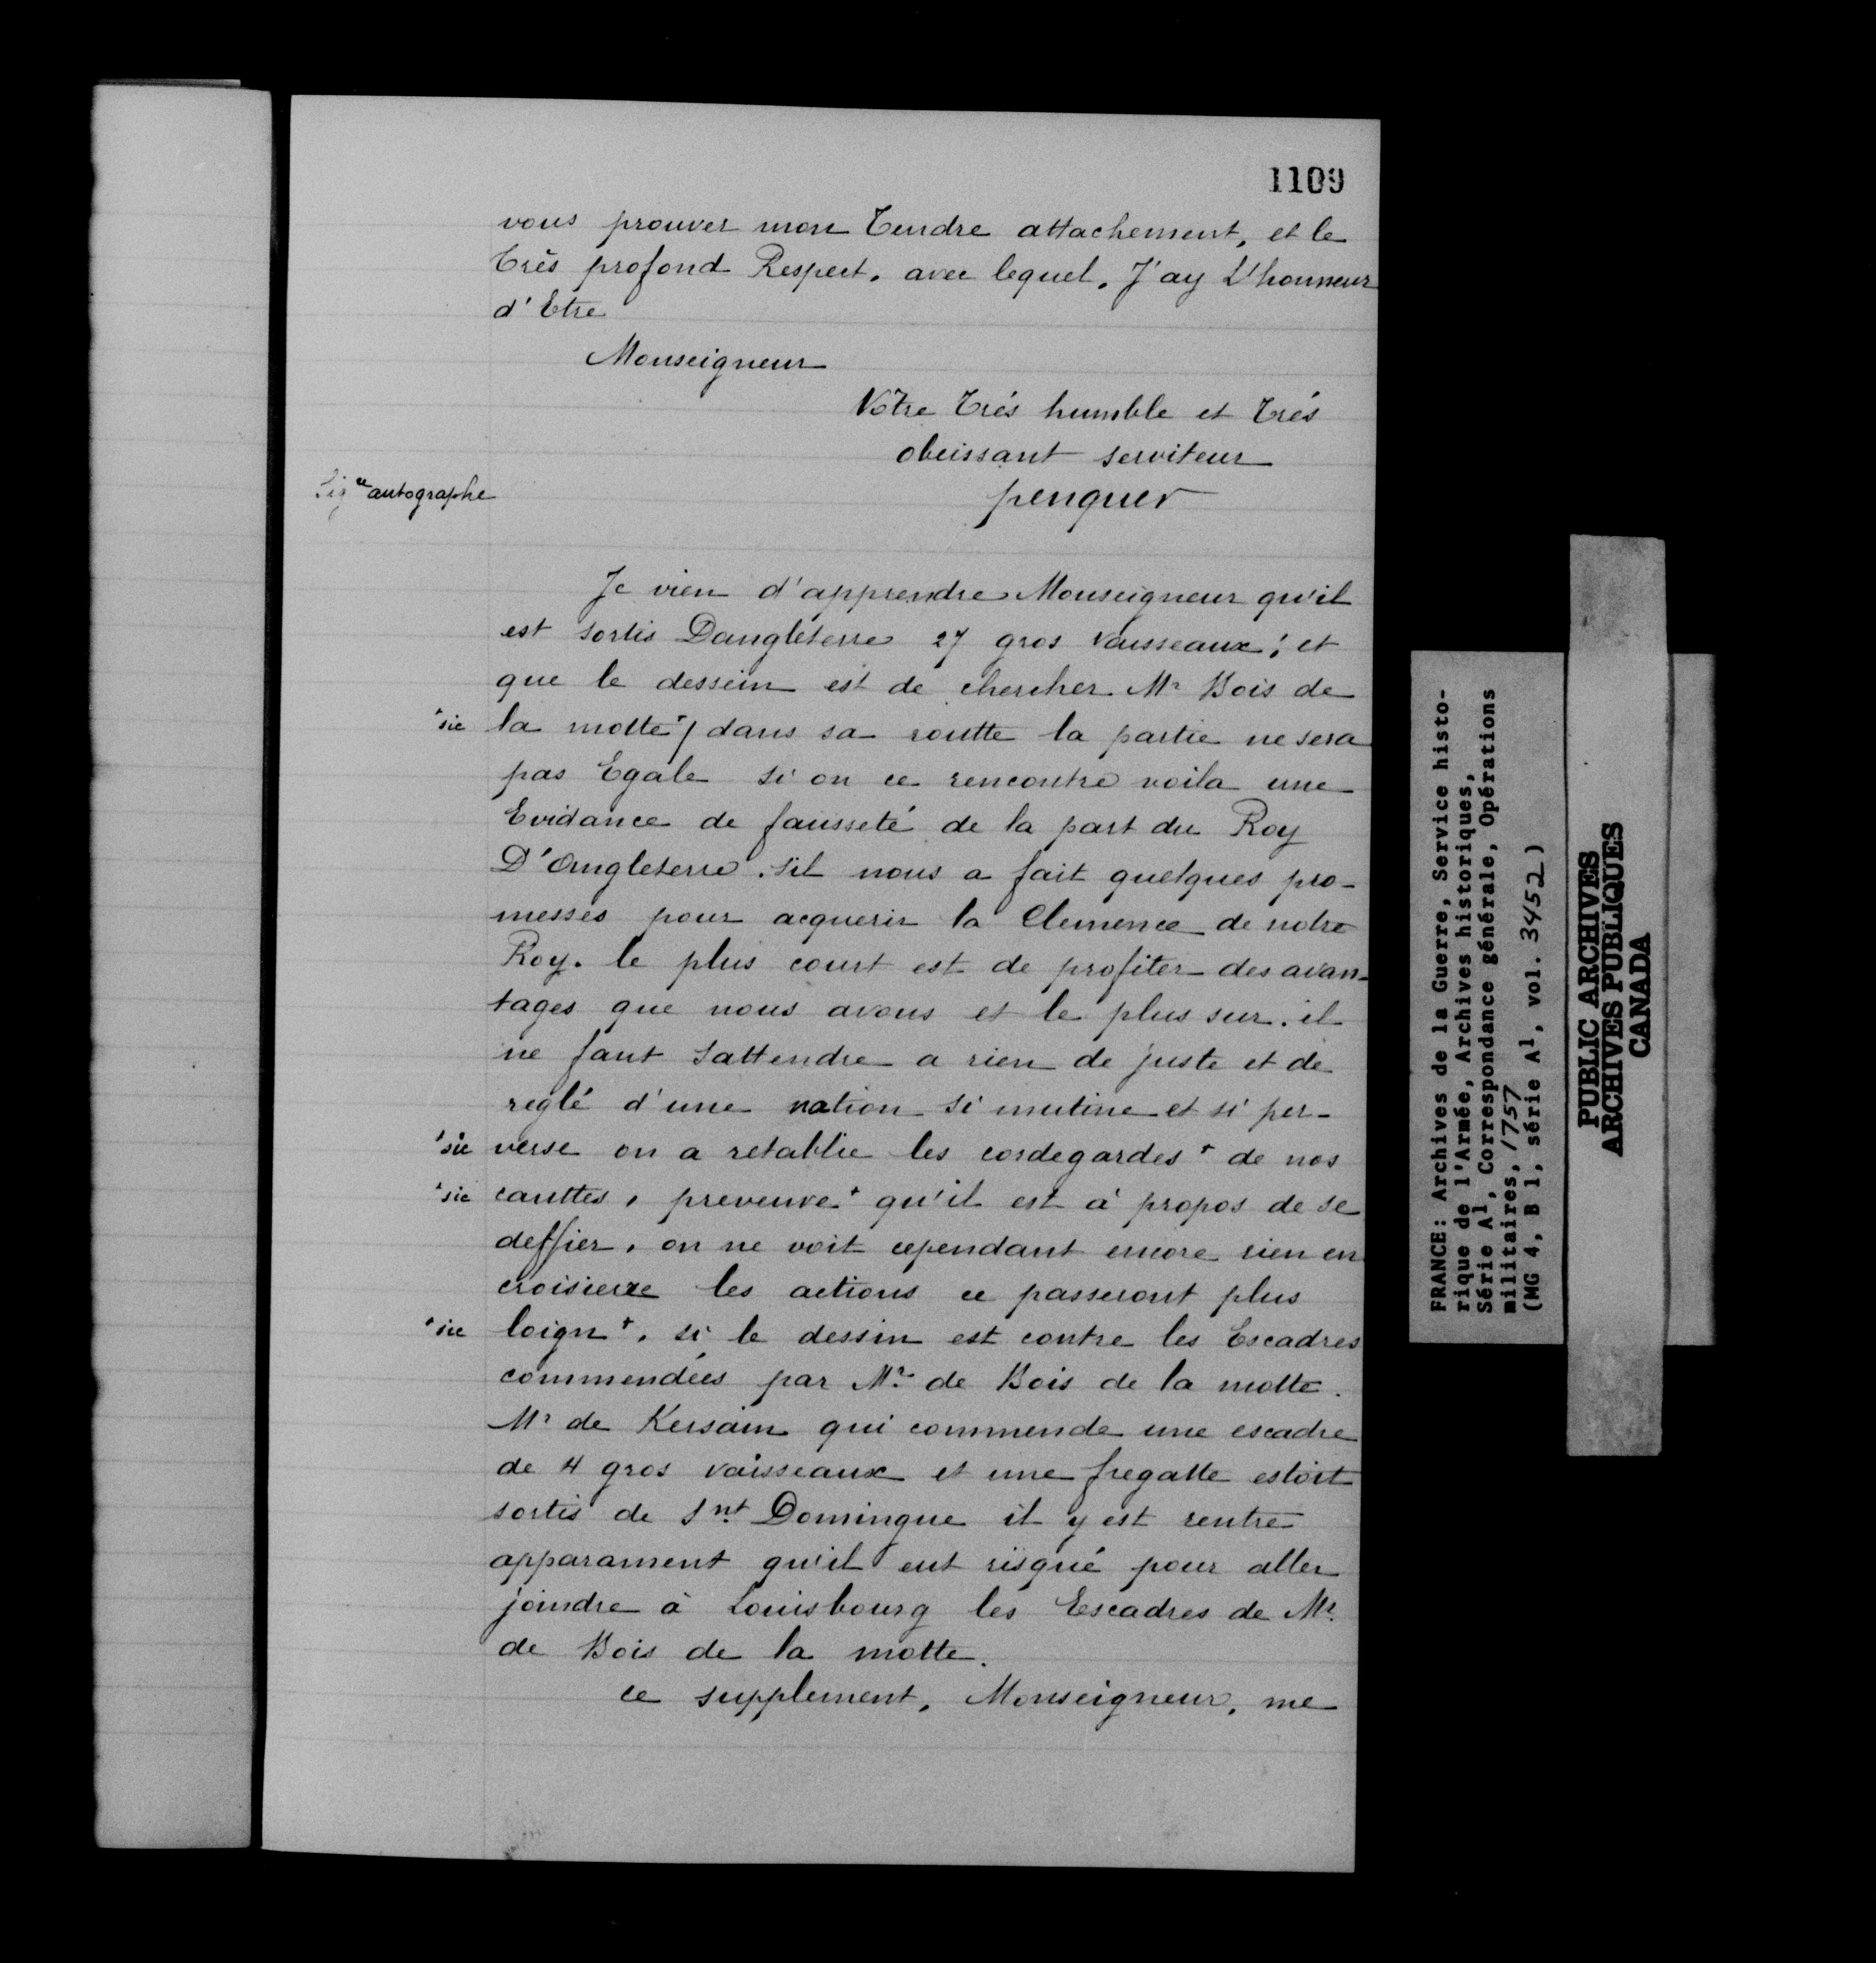 1109
vous prouver mon Tendre attachement, et le
Très profond Respect. avec lequel, J'ay L'honneur
d'Etre
Monseigneur
Vôtre Trés humble et Trés
obeissant serviteur
Sigre autographe
penquer
Je vien d'apprendre Monseigneur qu'il
est sortis Dangleterre 27 gros vaisseaux; et
que le dessein est de chercher Mr Bois de
+sic la motte+/ dans sa routte la partie ne sera
pas Egale si on ce rencontre voila une
Evidance de fausseté de la part du Roy
D'Angleterre. s'il nous a fait quelques pro-
messes pour acquerir la Clemence de notre
Roy. le plus court est de profiter des avan-
tages que nous avons et le plus sur. il
ne faut sattendre a rien de juste et de
reglé d'une nation si mutine et si per-
+sic verse on a retablie les cordegardes+ de nos
+sic cauttes, preveuve+ qu'il est à propos de se
deffier, on ne voit cependant encore rien en
croisierre les actions ce passeront plus
+sic loign+. si le dessin est contre les Escadres
commendées par Mr. de Bois de la motte.
Mr de Kersain qui commende une escadre
de 4 gros vaisseaux et une fregatte estoit
sortis de Snt. Domingue il y est rentre
apparament qu'il eut risqué pour aller
joindre à Louisbourg les Escadres de Mr.
de Bois de la motte.
ce supplement, Monseigneur, me
FRANCE: Archives de la Guerre, Service histo-
rique de l'Armée, Archives historiques,
Série A1, Correspondance générale, Opérations
militaires, 1757
(MG 4, B 1, série A1, vol. 3452)
PUBLIC ARCHIVES
ARCHIVES PUBLIQUES
CANADA